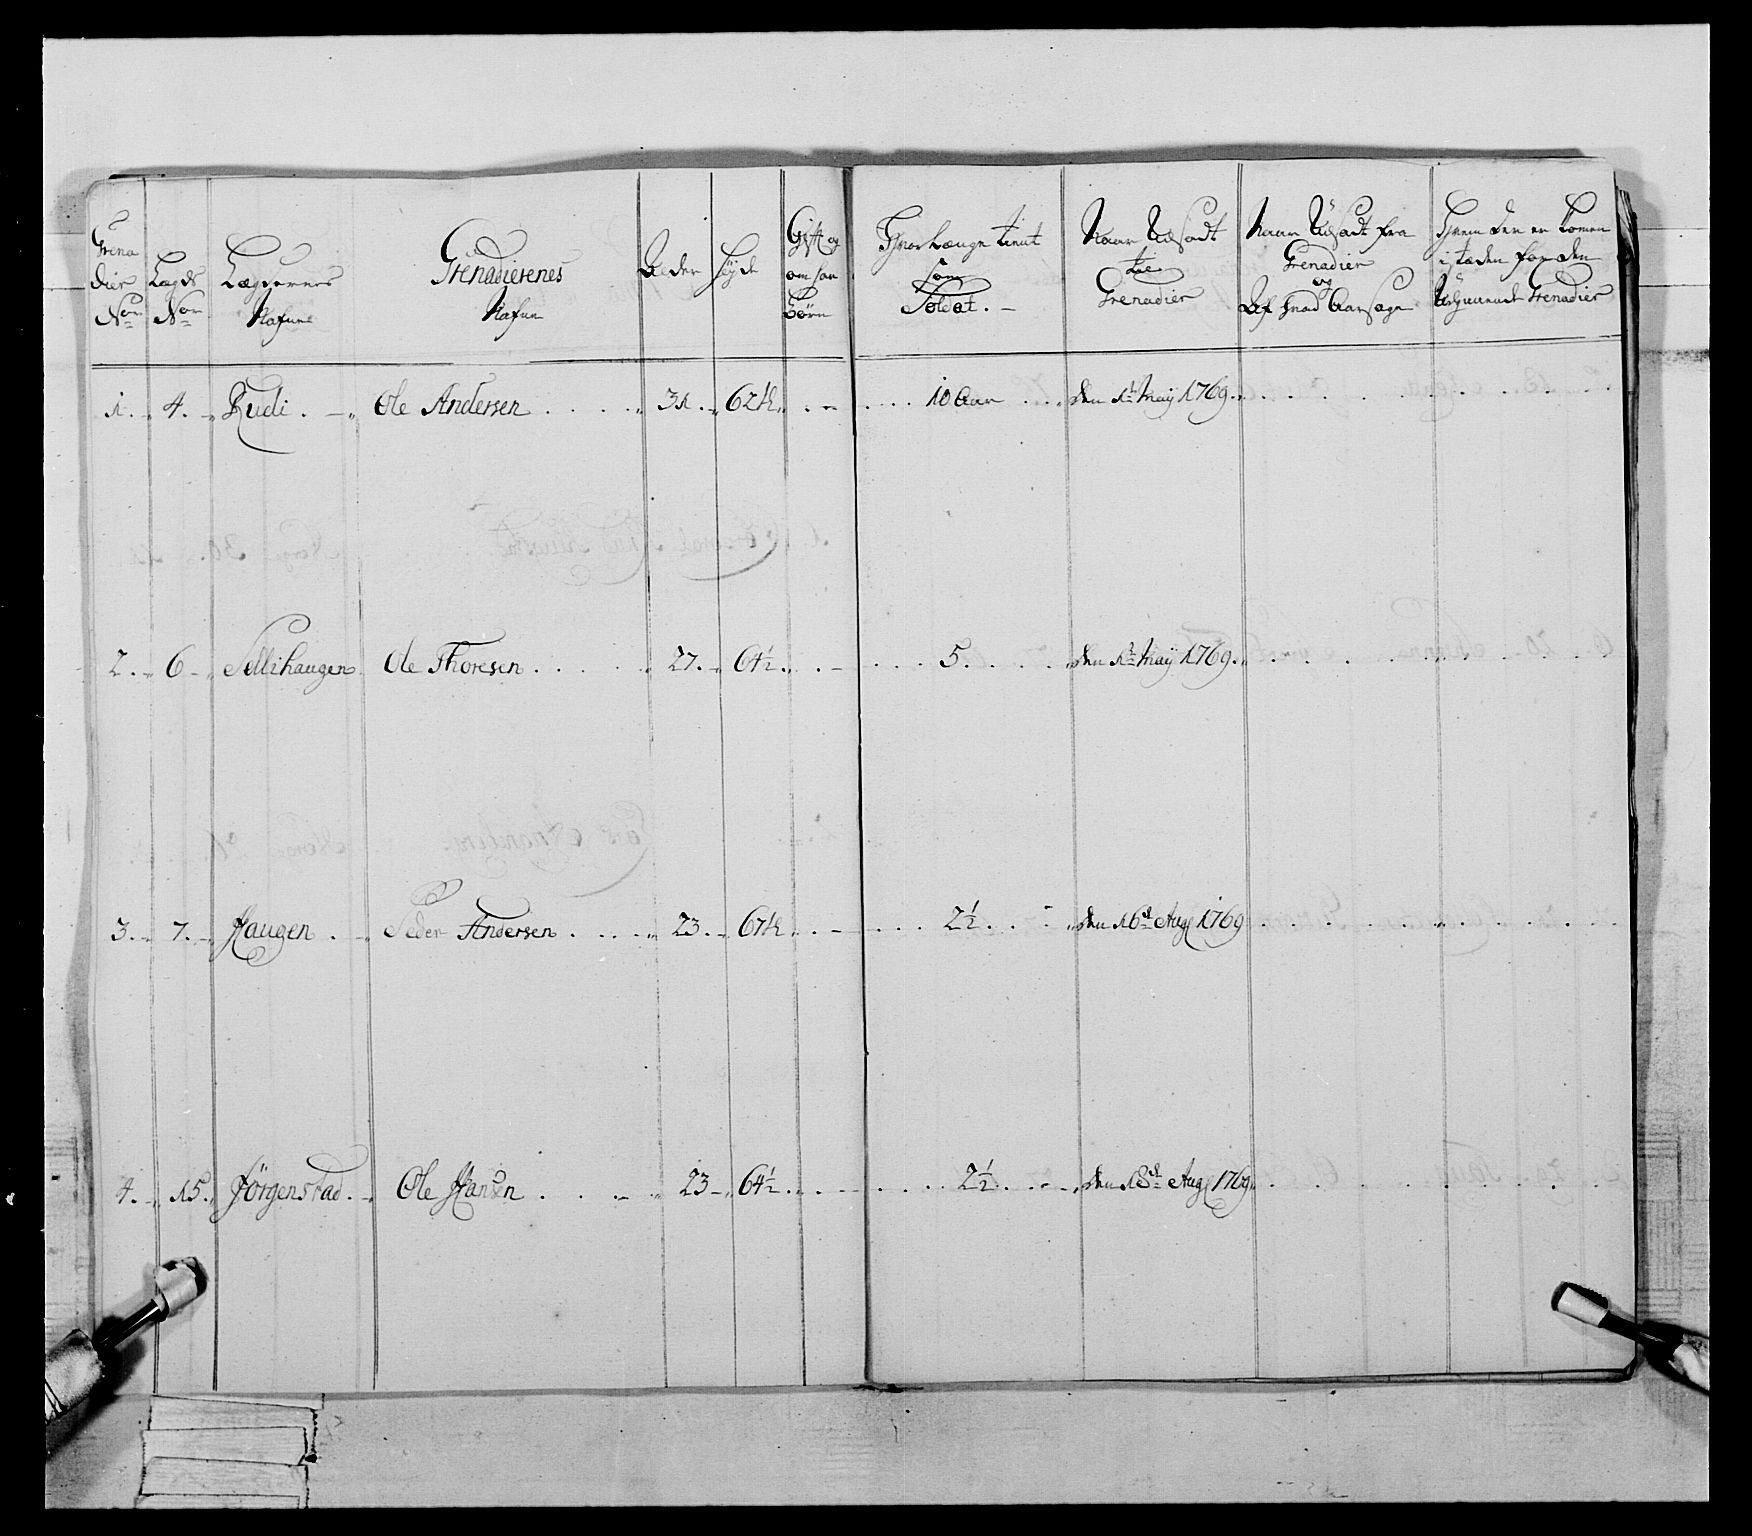 Grena dier No | Lægds No | Lægdernes Nafne | Grenadierenes Nafne | Alder | Høyde | Gift og om har Børn | Hvor længe tient som Soldat. | Naar Udsadt toe Grenadier | Naar Udsadt fra Grenadier og Af Hvad Aarsage | Hvem der er komen i stæden for den Grenadier
1. 4. Rudi. Ole Andersen 31. 62½ 10 Aar den 1t Maÿ 1769.
2. 6 Sellihaugen Ole Thoresen 27. 64½ 5. den 1t Maÿ 1769.
3. 7. Haugen Peder Andersen 23. 67½ 2½ den 16d Aug 1769
4. 15. Jörgenstad. Ole Hansen 23 64½ 2½ den 18d Aug 1769.